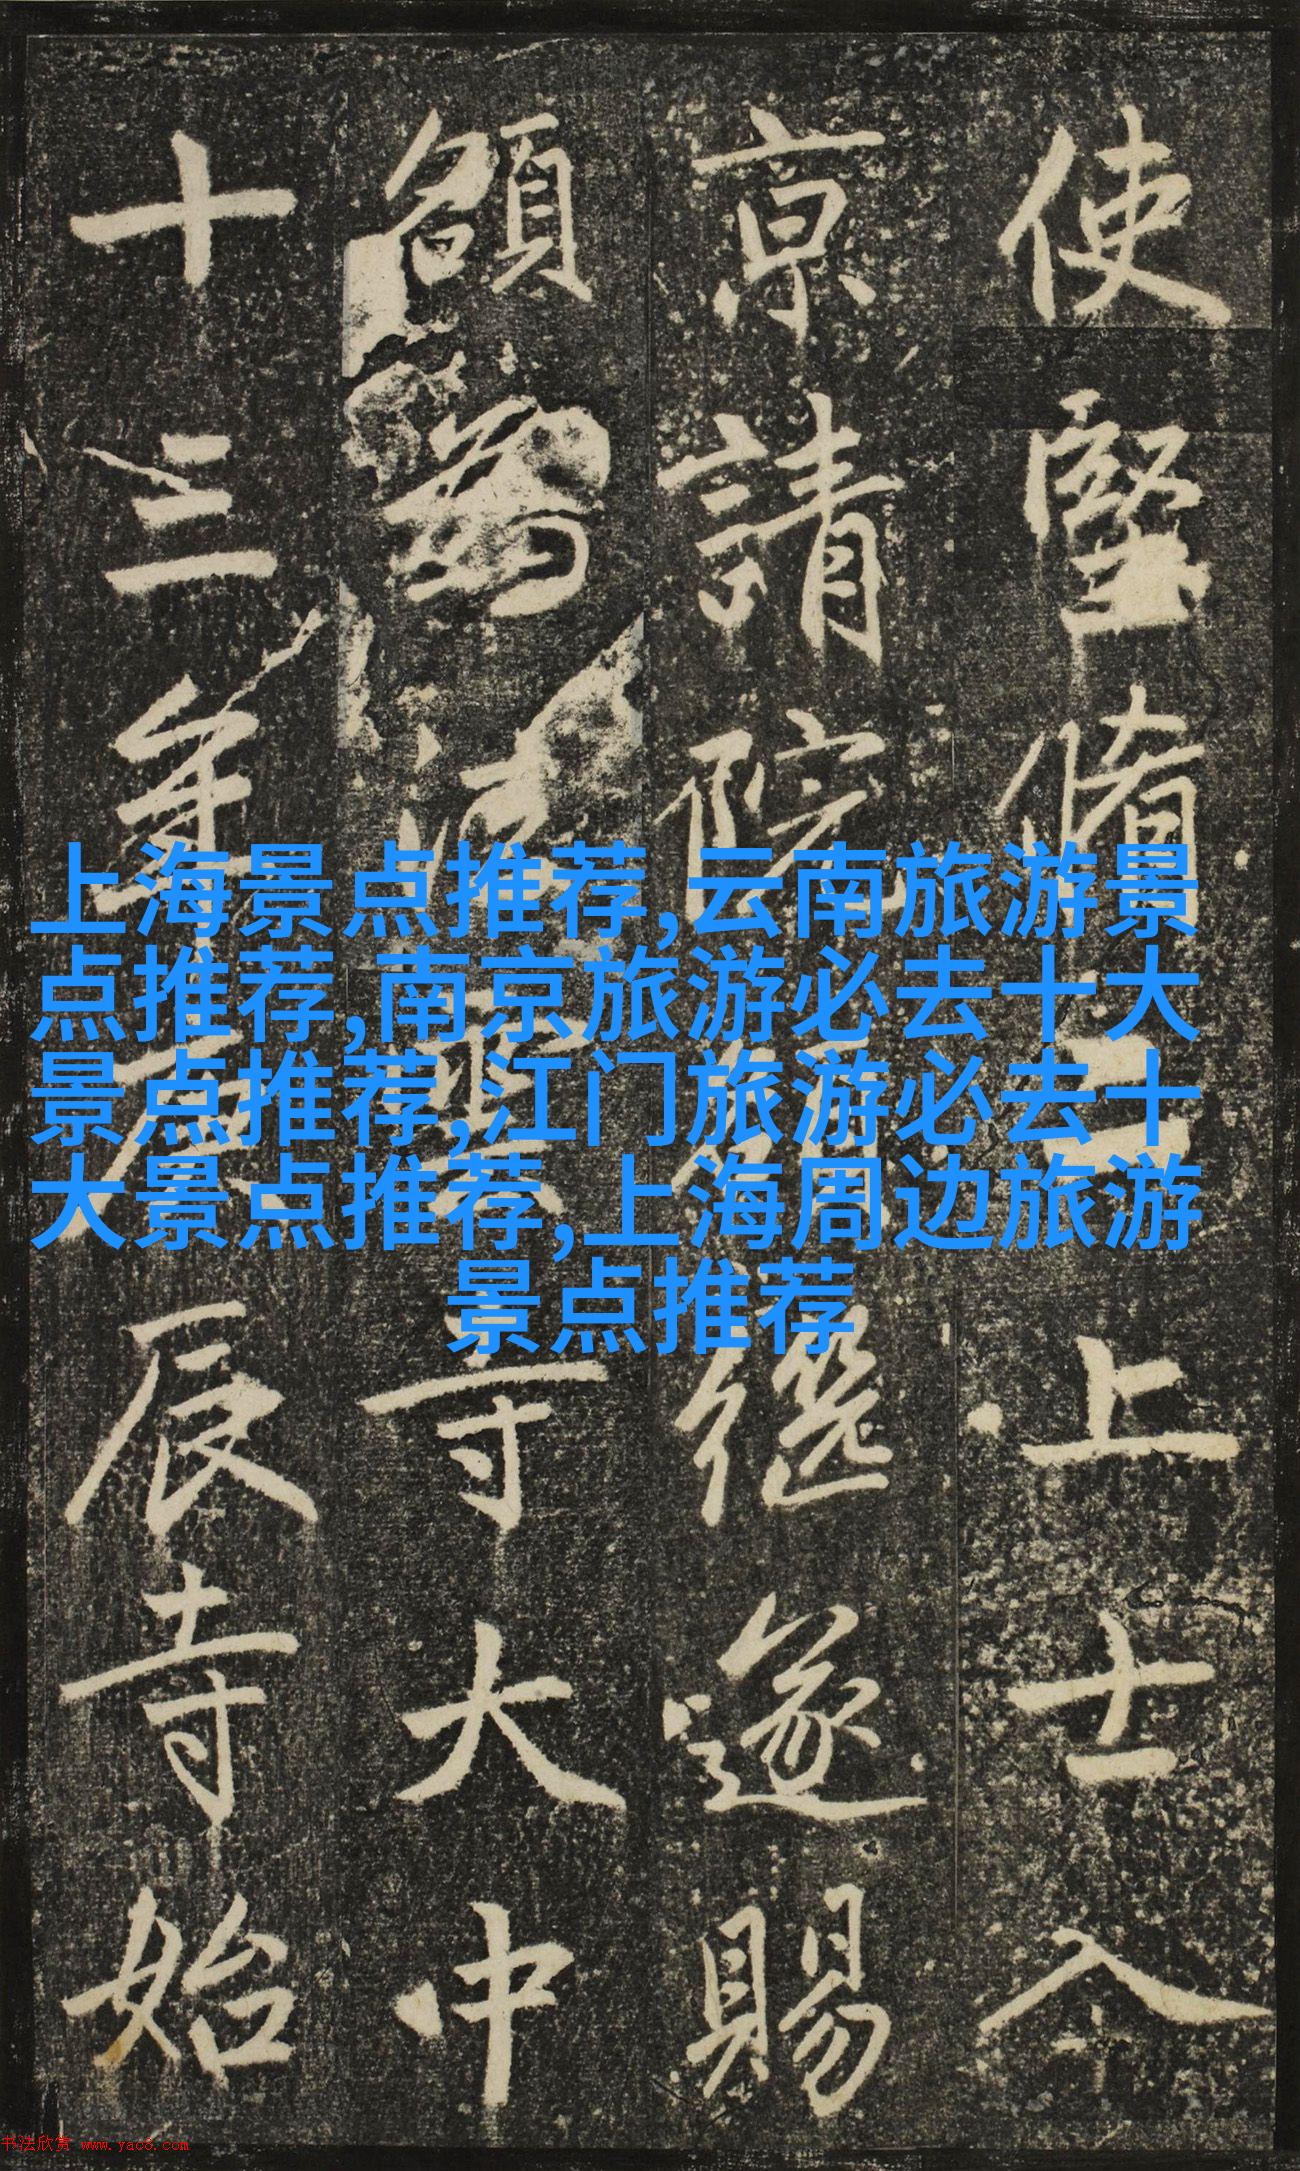 使堅脩上士入
京請院繼遂賜
額為寺大中
十三年庚辰寺始
上海景点推荐,云南旅游景
点推荐,南京旅游必去十大
景点推荐,江门旅游必去十
大景点推荐,上海周边旅游
景点推荐
书法欣赏 www.yac8.com